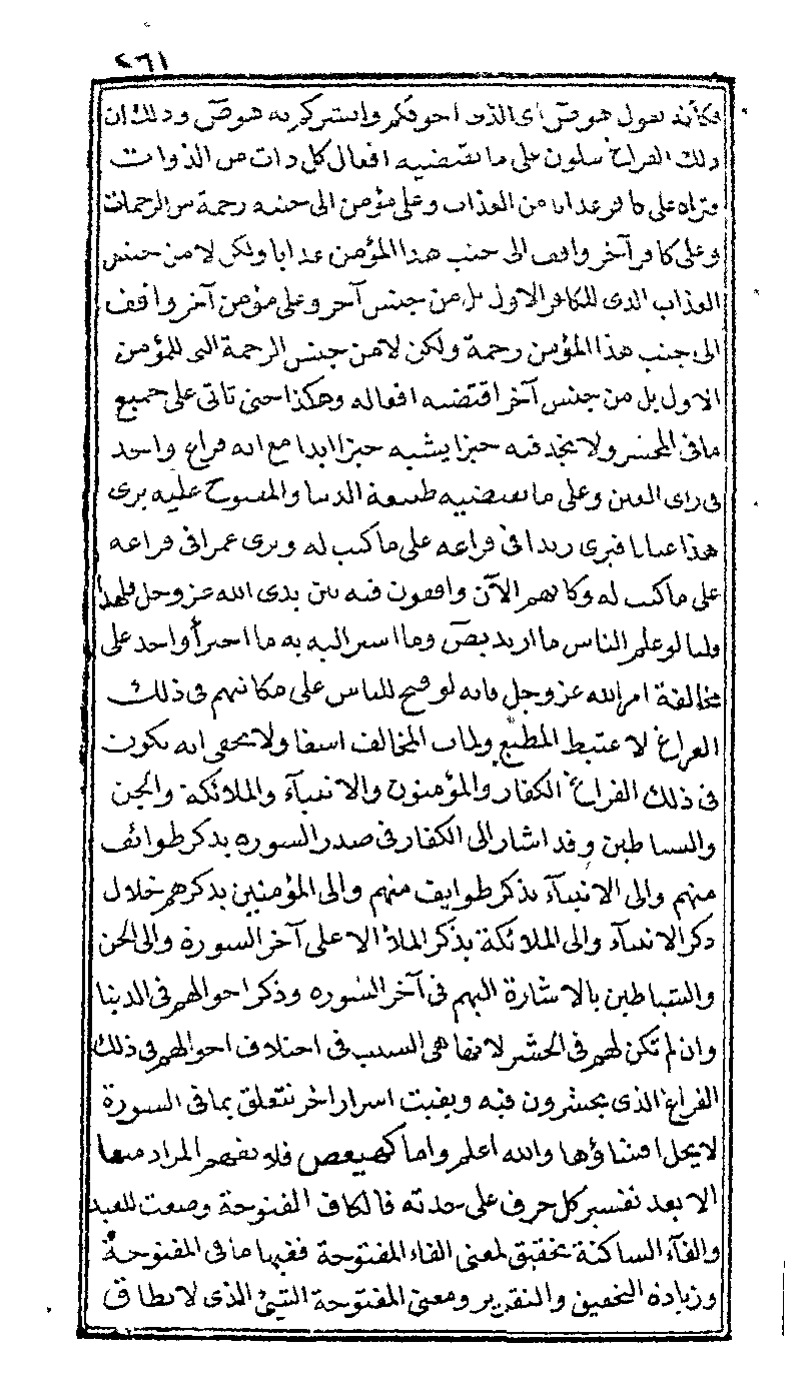 ٢٦١
فكأنه يقول هو ص أى الذى أخوفكم وأبشركم به هو ص وذلك ان
ذلك الفراغ يتلون على ما تقتضيه افعال كل ذات من الذوات
فتراه على كافر عذابا من العذاب وعلى مؤمن الى جنبه رحمة من الرحمات
وعلى كافر آخر واقف الى جنب هذا المؤمن عذابا ولكن لا من جنس
العذاب الذى للكافر الاول بل من جنس آخر وعلى مؤمن آخر واقف
الى جنب هذا المؤمن رحمة ولكن لا من جنس الرحمة التى للمؤمن
الاول بل من جنس آخر اقتضته افعاله وهكذا حتى تاتى على جميع
ما فى المحشر ولا تجد فيه حيزا يشبه حيزا ابدا مع انه فراغ واحد
فى رأى العين وعلى ما تقتضيه طبيعة الدنيا والمفتوح عليه يرى
هذا عيانا فيرى زيدا فى فراغه على ما كتب له ويرى عمرا فى فراغه
على ما كتب له وكانهم الآن واقفون فيه بين يدى الله عز وجل فلهذا
قلنا لو علم الناس ما اريد بص وما اشير اليه به ما اجترأ واحد على
مخالفة امر الله عز وجل فانه لو فتح للناس على مكانهم فى ذلك
الفراغ لاغتبط المطيع ولمات المخالف اسفا ولا يخفى انه يكون
فى ذلك الفراغ الكفار والمؤمنون والانبيآء والملائكة والجن
والشياطين وقد اشار الى الكفار فى صدر السوره بذكر طوائف
منهم والى الانبيآء بذكر طوايف منهم والى المؤمنين بذكرهم خلال
ذكر الانبيآء والى الملائكة بذكر الملأ الاعلى آخر السورة والى الجن
والشياطين بالاشارة اليهم فى آخر السوره وذكر احوالهم فى الدينا
وان لم تكن لهم فى الحشر لانها هى السبب فى اختلاف احوالهم فى ذلك
الفراغ الذى يحشرون فيه وبقيت اسرار اخر تتعلق بما فى السورة
لا يحل افشاؤها والله اعلم واما كهيعص فلا يفهم المراد منها
الا بعد تفسير كل حرف على حدته فالكاف المفتوحة وضعت للعبد
والفآء الساكنة تحقيق لمعنى الفاء المفتوحة ففيها ما فى المفتوحة
وزيادة التحقيق والتقرير ومعنى المفتوحة الشئ الذى لا يطاق